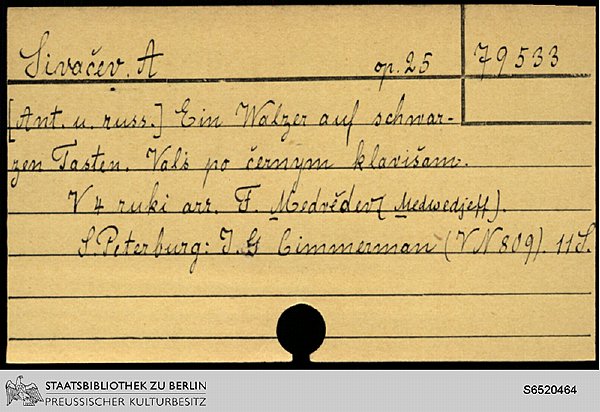 Sivačev. A op. 25 79533
[Ant. u. russ.] Ein Walzer auf schwar-
zen Tasten. Val's po černym klavišam.
V 4 ruki arr. F. Medvěděv (Medwedjeff).
S. Peterburg: J. G Cimmerman (VN 809). 11 S.
STAATSBIBLIOTHEK ZU BERLIN
PREUSSISCHER KULTURBESITZ
S6520464